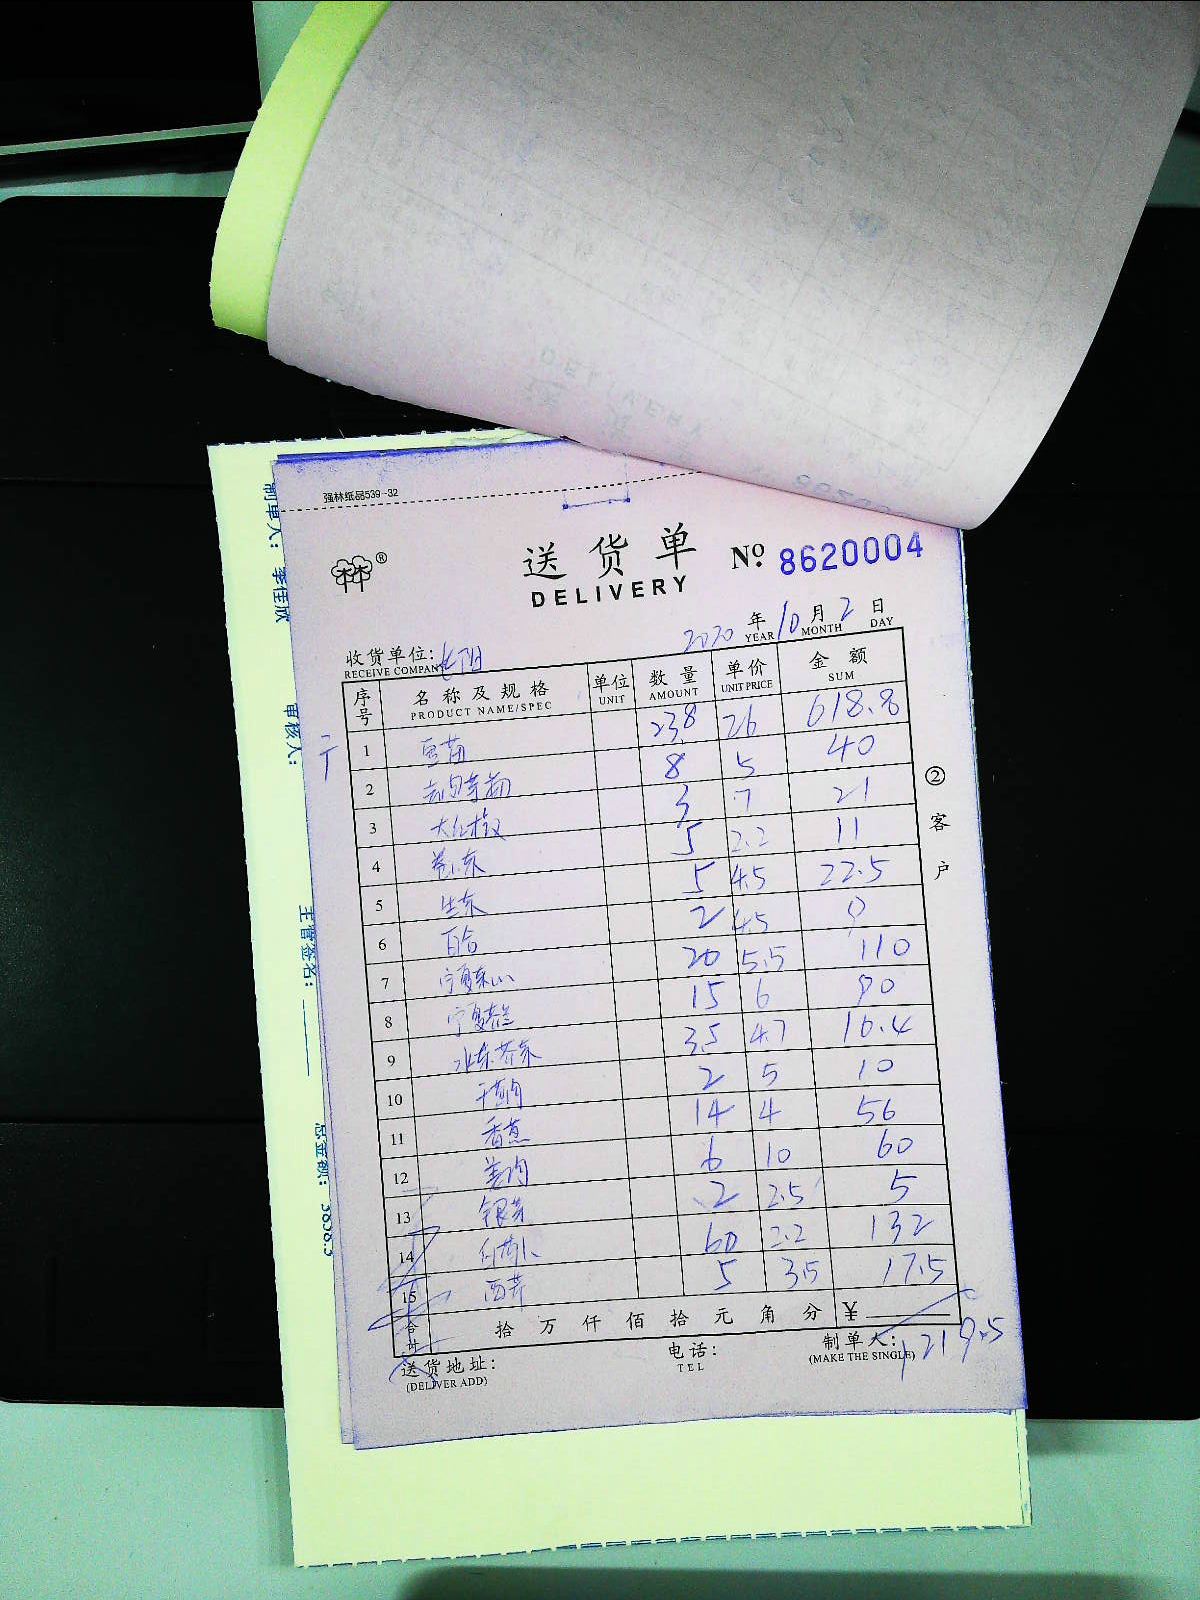 强林纸品539-32
送货单
DELIVERY
№ 8620004
2020 年 10 月 2 日
YEAR MONTH DAY
收货单位:
RECEIVE COMPANY
序号 名称及规格 单位 数量 单价 金额
PRODUCT NAME/SPEC UNIT AMOUNT UNIT PRICE SUM
1 豆苗 23.8 26 618.8
2 8 5 40
3 大红椒 3 7 21
4 5 2.2 11
5 生菜 5 4.5 22.5
6 百合 2 4.5 9
7 宁夏菜心 20 5.5 110
8 宁夏芥兰 15 6 90
9 水东芥菜 3.5 4.7 16.4
10 干葱肉 2 5 10
11 香蕉 14 4 56
12 姜肉 6 10 60
13 银芽 2 2.5 5
14 60 2.2 132
15 西芹 5 3.5 17.5
合计 拾 万 仟 佰 拾 元 角 分 ¥
1219.5
送货地址:
(DELIVER ADD)
电话:
TEL
制单人:
(MAKE THE SINGLE)
②客户
制单人: 李佳欣
审核人:
主管签名:
总金额: 3838.3